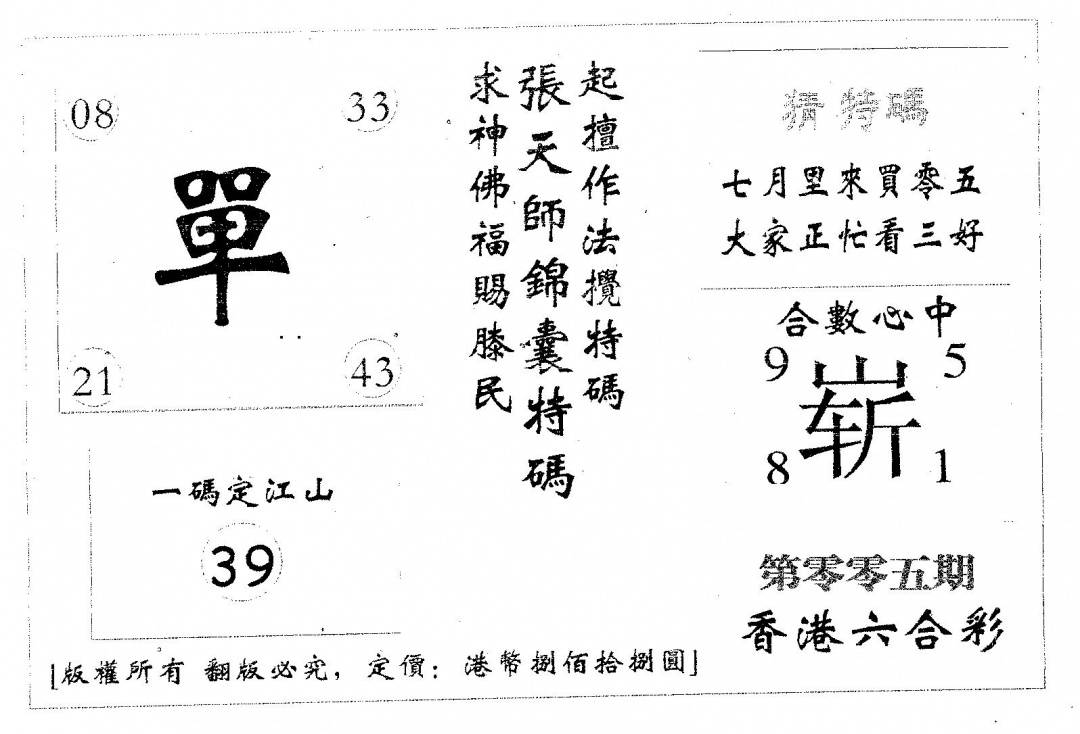 08 33
單
21 43
一碼定江山
39
起擅作法攪特碼
張天師錦囊特碼
求神佛福賜膝民
猜特碼
七月里來買零五
大家正忙看三好
合數必中
9 5
崭
8 1
第零零五期
香港六合彩
[版權所有 翻版必究, 定價: 港幣捌佰拾捌圓]